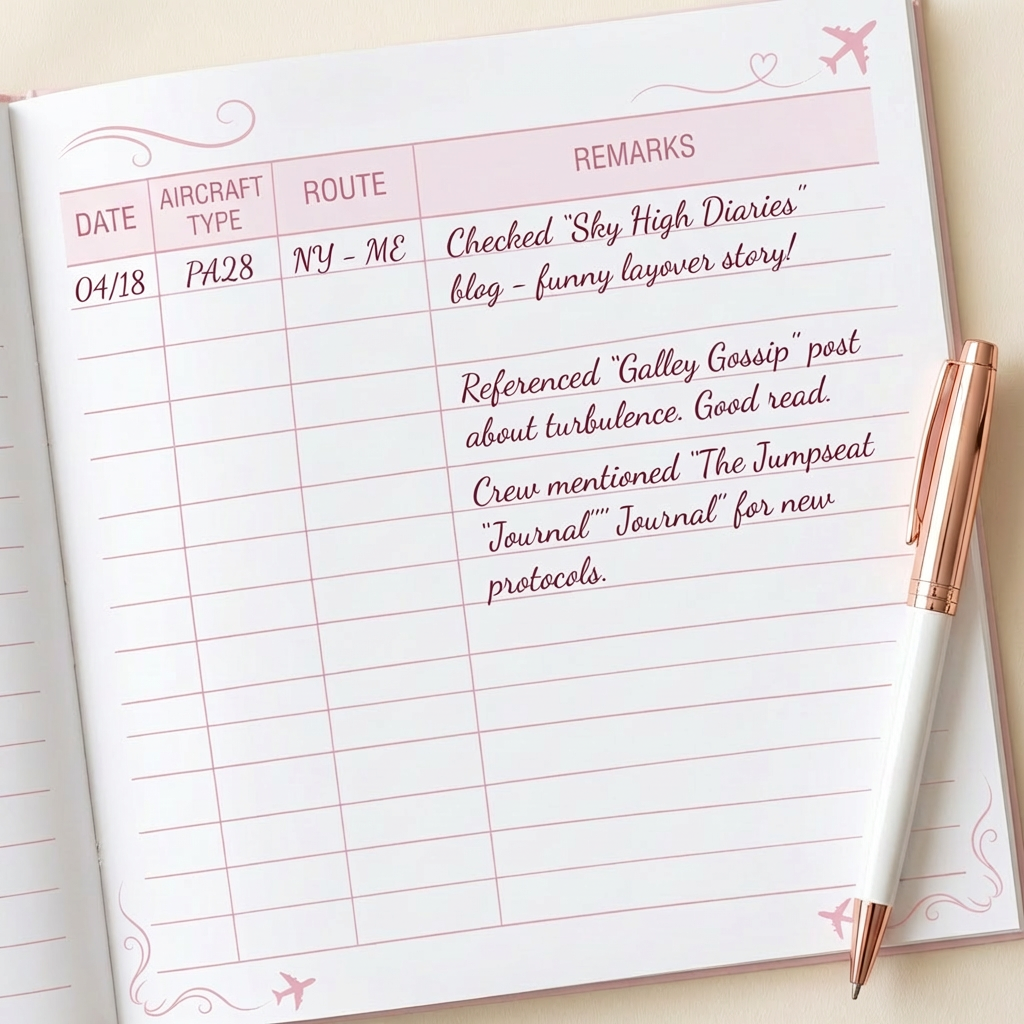 DATE
AIRCRAFT
TYPE
ROUTE
REMARKS
04/18
PA28
NY - ME
Checked "Sky High Diaries"
blog - funny layover story!
Referenced "Galley Gossip" post
about turbulence. Good read.
Crew mentioned "The Jumpseat
"Journal"" Journal" for new
protocols.